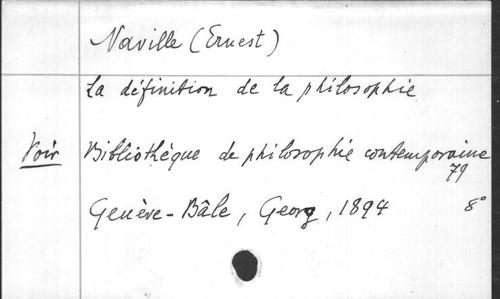 Naville (Ernest)
La définition de la philosophie
Voir Bibliothèque de philosophie contemporaine
79
Genève-Bâle, Georg, 1894 8°